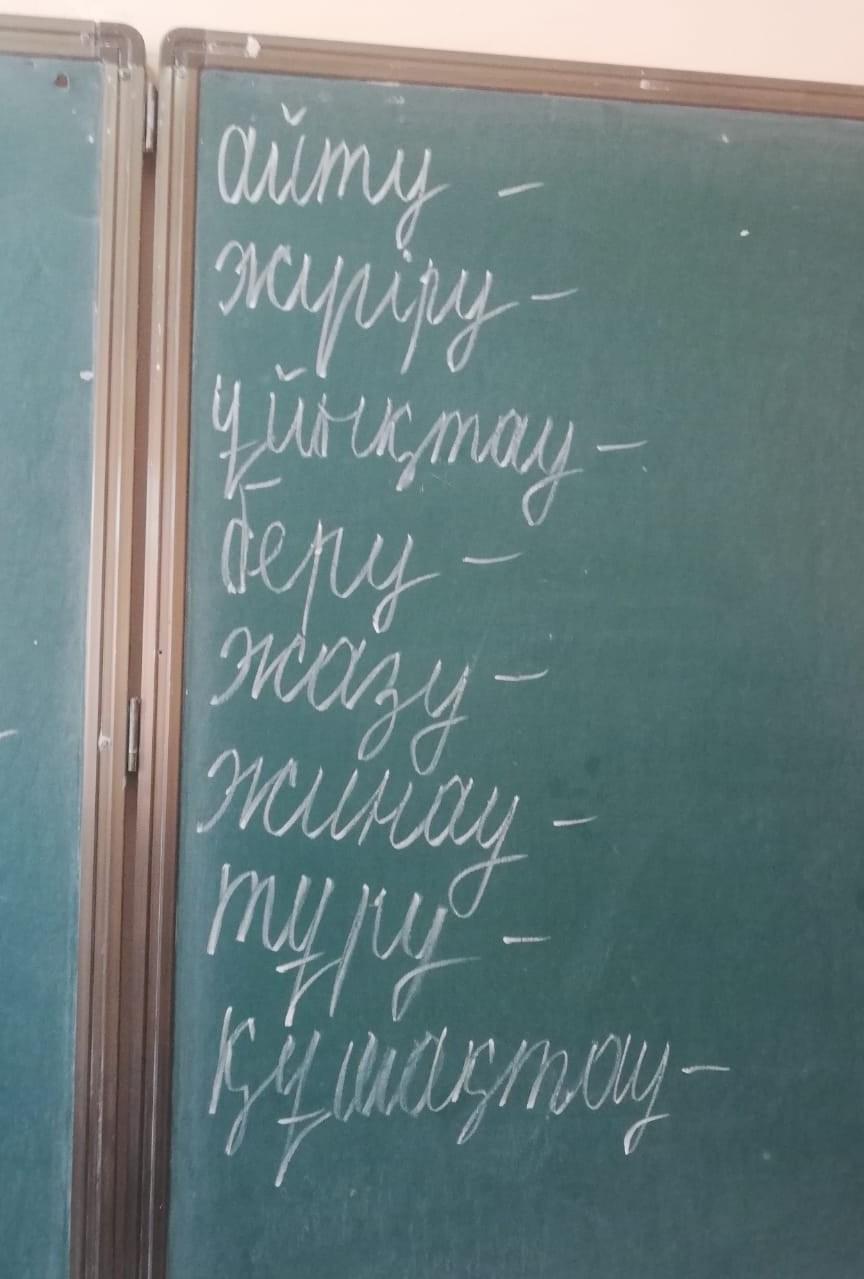 айту –
жүгіру –
ұйықтау –
беру –
жазу –
жинау –
тұру –
құшақтау –